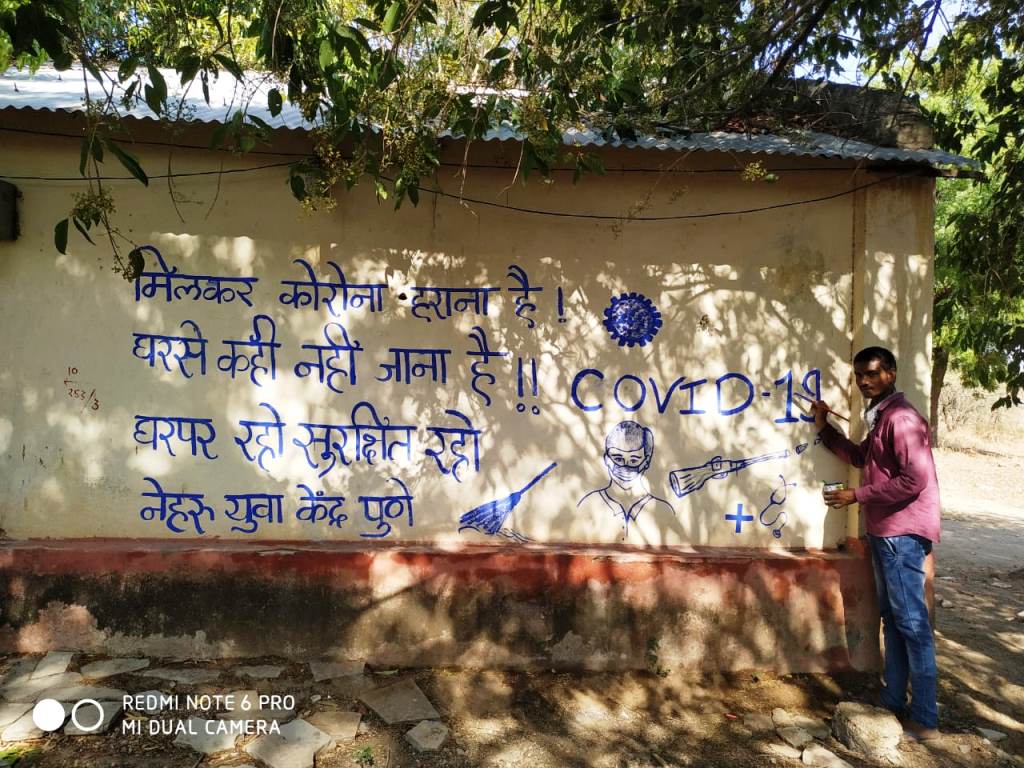 मिलकर कोरोना हराना है !
घरसे कही नहीं जाना है !!
COVID-19
घरपर रहो सुरक्षित रहो
नेहरू युवा केंद्र पुणे
10
253/3
REDMI NOTE 6 PRO
MI DUAL CAMERA